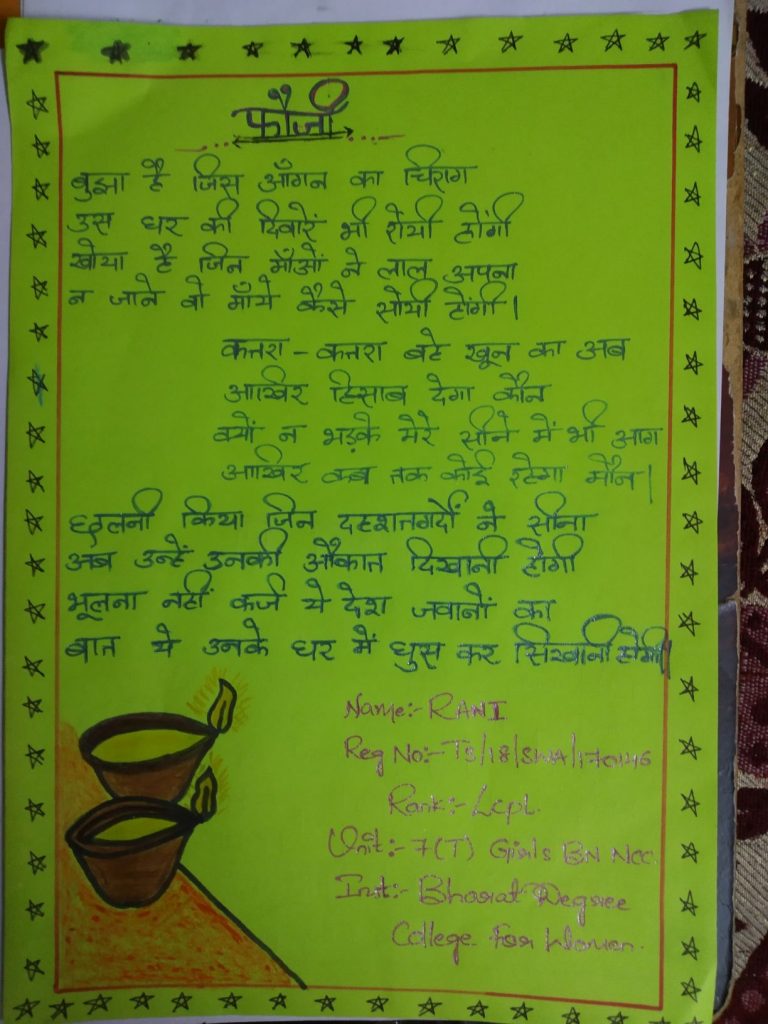 फौजी
बुझा है जिस आँगन का चिराग
उस घर की दिवारें भी रोयी होंगी
खोया है जिन माँओं ने लाल अपना
न जाने वो माँये कैसे सोयी होंगी।
कतरा - कतरा बहे खून का अब
आखिर हिसाब देगा कौन
क्यों न भड़के मेरे सीने में भी आग
आखिर कब तक कोई रहेगा मौन।
छलनी किया जिन दहशतगर्दों ने सीना
अब उन्हें उनकी औकात दिखानी होगी
भूलना नहीं कर्ज ये देश जवानों का
बात ये उनके घर में घुस कर सिखानी होगी।
Name:- RANI
Reg No:- TS/18/SWA/170146
Rank:- Lcpl.
Unit:- 7(T) Girls BN NCC
Inst:- Bharat Degree
College For Women.